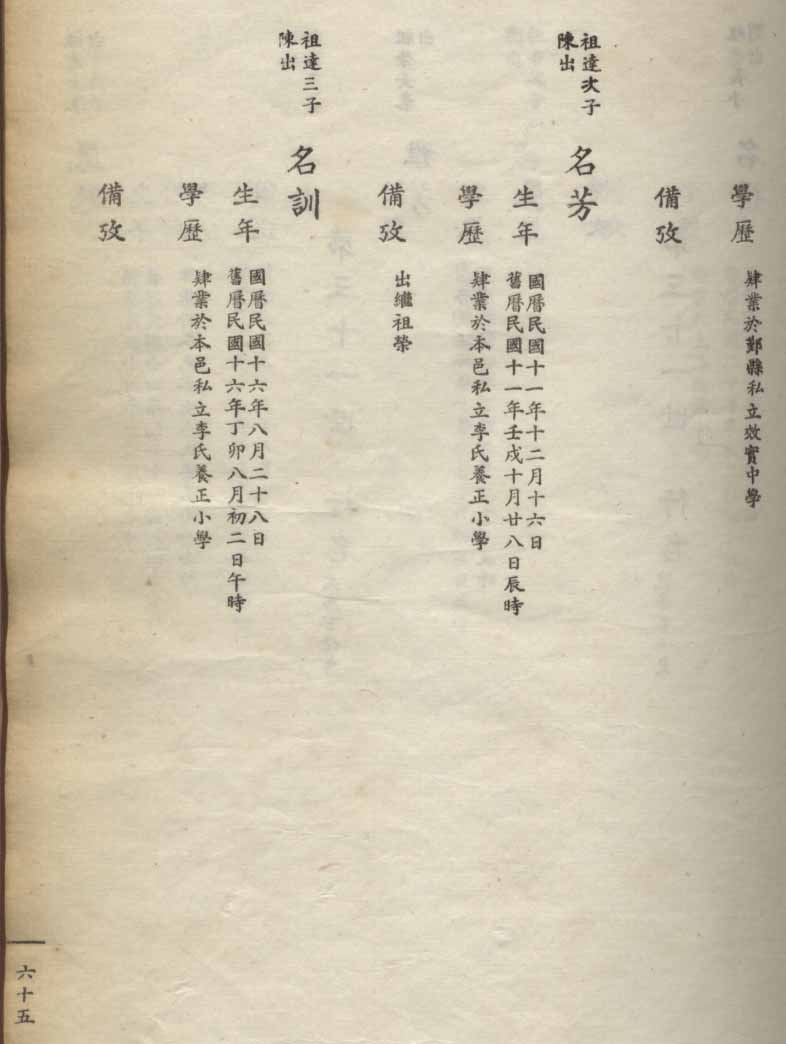 學歷
肄業於鄞縣私立效實中學
備攷
祖達次子
陳出
名芳
生年
國曆民國十一年十二月十六日
舊曆民國十一年壬戌十月廿八日辰時
學歷
肄業於本邑私立李氏養正小學
備攷
出繼祖榮
祖達三子
陳出
名訓
生年
國曆民國十六年八月二十八日
舊曆民國十六年丁卯八月初二日午時
學歷
肄業於本邑私立李氏養正小學
備攷
六十五